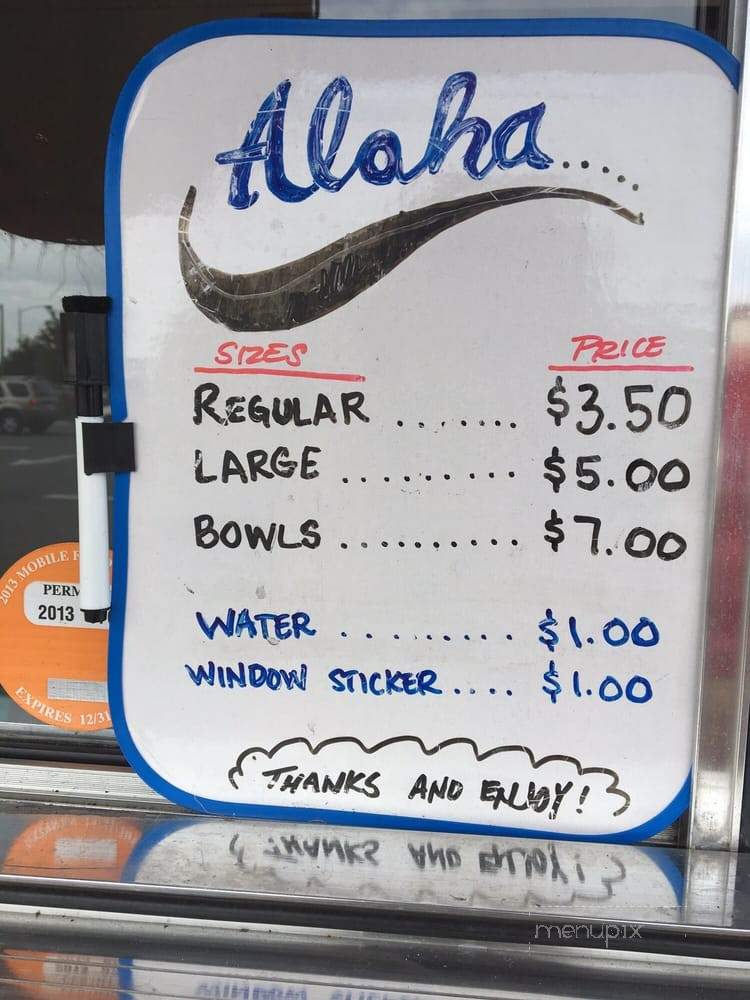 Aloha.....
SIZES PRICE
REGULAR ....... $3.50
LARGE .......... $5.00
BOWLS .......... $7.00
WATER .......... $1.00
WINDOW STICKER .... $1.00
THANKS AND ENJOY!
2013 MOBILE
2013
EXPIRES 12/31
menupix